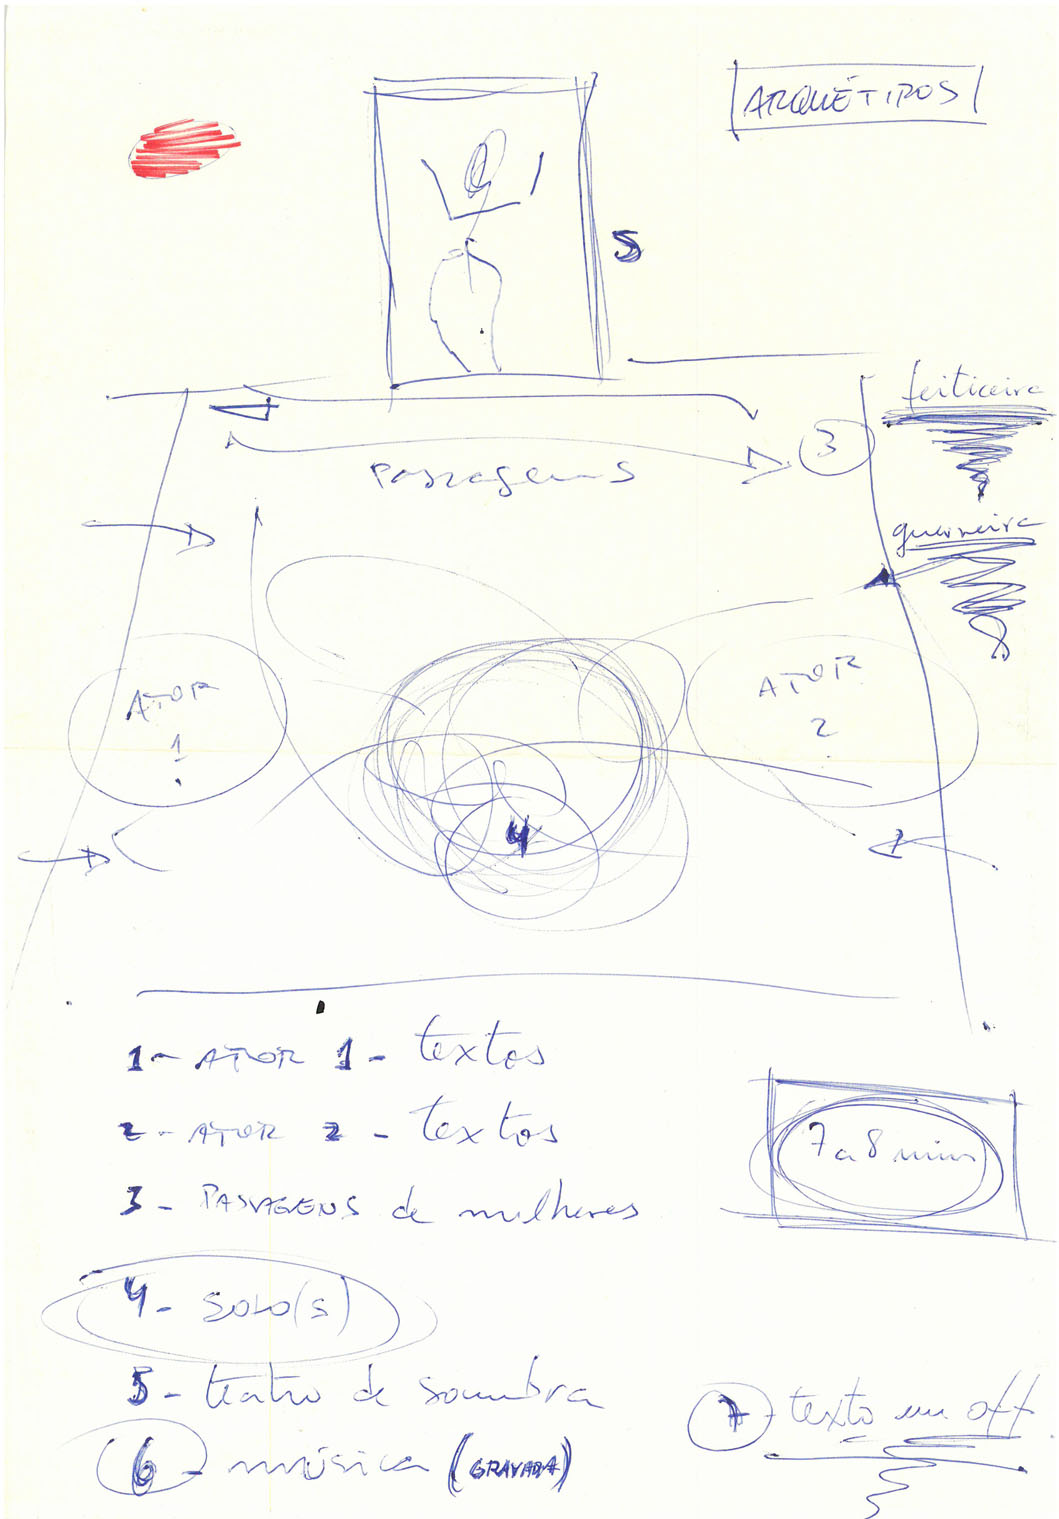 ARQUÉTIPOS
5
feiticeira
3
passagens
guerreira
ATOR
1
ATOR
2
4
1- ATOR 1 - textos
2- ATOR 2 - textos
7 a 8 min
3 - PASSAGENS de mulheres
4 - SOLO(S)
5 - teatro de sombra
7 - texto em off
6 - música (GRAVADA)